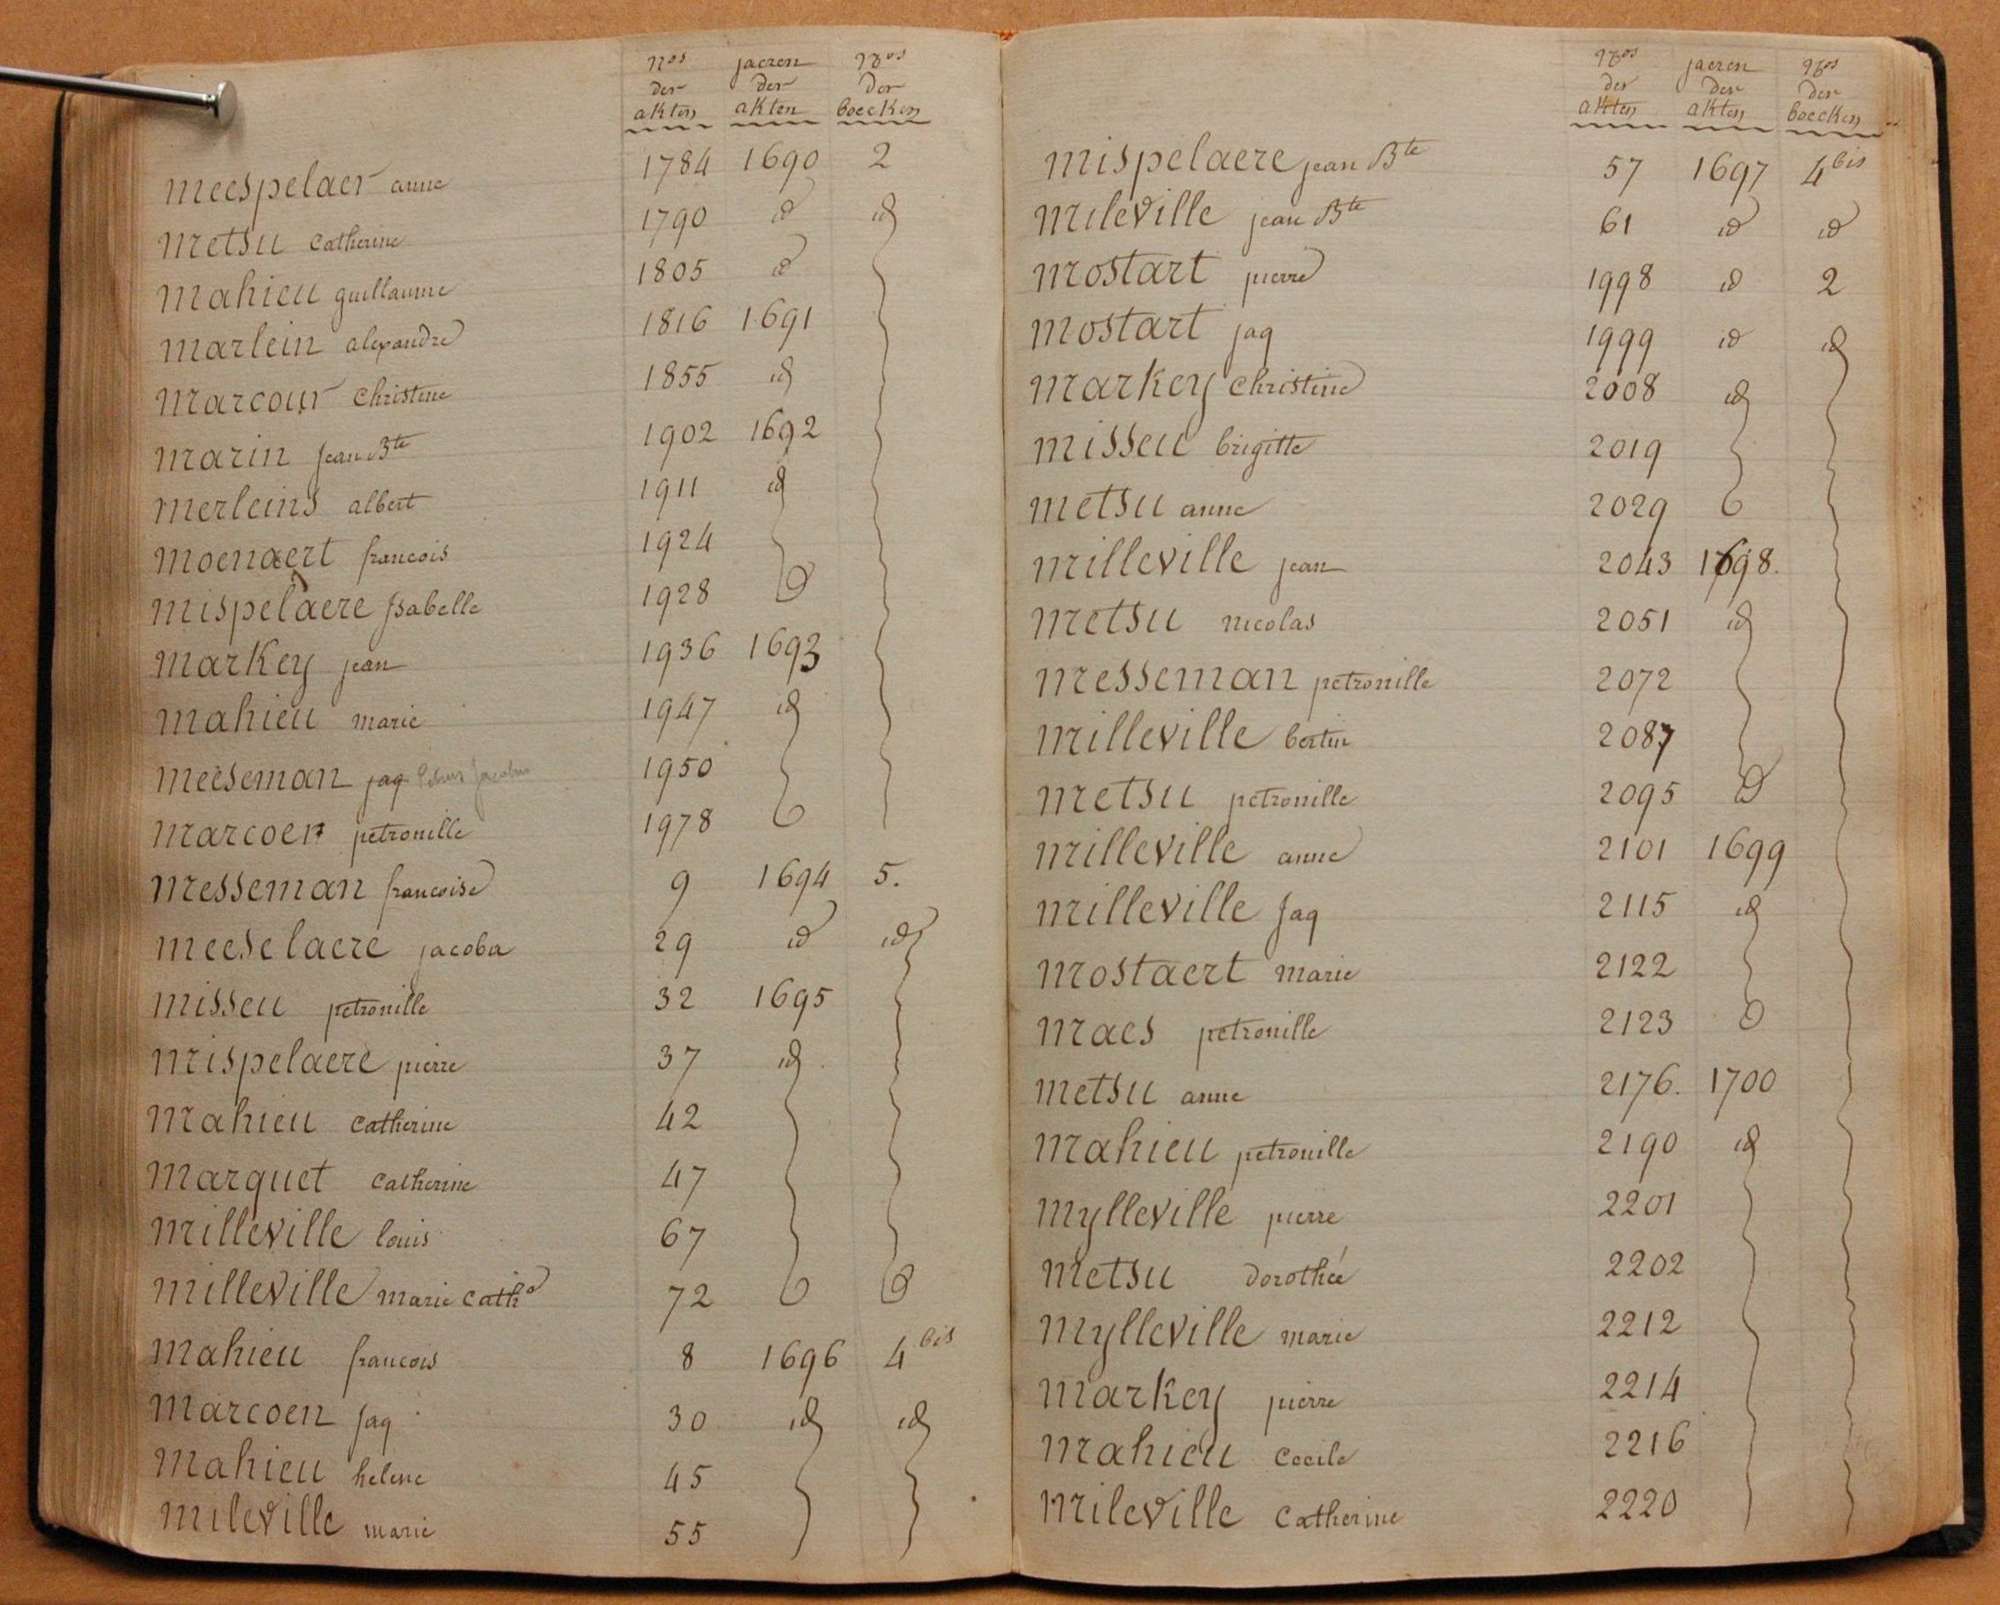 nos jaeren nos
der der der
akten akten boecken
meespelaer anne 1784 1690 2
metsu catherine 1790 id id
mahieu guillaume 1805 id
marlein alexandre 1816 1691
marcour christine 1855 id
marin jean Bte 1902 1692
merleins albert 1911 id
moenaert francois 1924
mispelaere isabelle 1928
markey jean 1936 1693
mahieu marie 1947 id
meeseman jaq 1950
marcoen petronille 1978
messeman francoise 9 1694 5.
meeselaere jacoba 29 id id
misseu petronille 32 1695
mispelaere pierre 37 id
mahieu catherine 42
marquet catherine 47
milleville louis 67
milleville marie cathe 72
mahieu francois 8 1696 4 bis
marcoen jaq 30 id id
mahieu helene 45
mileville marie 55
nos jaeren nos
der der der
akten akten boecken
mispelaere jean Bte 57 1697 4 bis
mileville jean Bte 61 id id
mostart pierre 1998 id 2
mostart jaq 1999 id id
markey christine 2008 id
misseu brigitte 2019
metsu anne 2029
milleville jean 2043 1698.
metsu nicolas 2051 id
messeman petronille 2072
milleville bertin 2087
metsu petronille 2095
milleville anne 2101 1699
milleville jaq 2115 id
mostaert marie 2122
maes petronille 2123
metsu anne 2176. 1700
mahieu petronille 2190 id
mylleville pierre 2201
metsu dorothée 2202
mylleville marie 2212
markey pierre 2214
mahieu cecile 2216
mileville catherine 2220